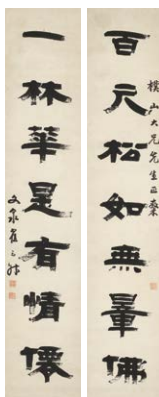 百尺松如無量佛
山大兄先生正
一林華是有情僊